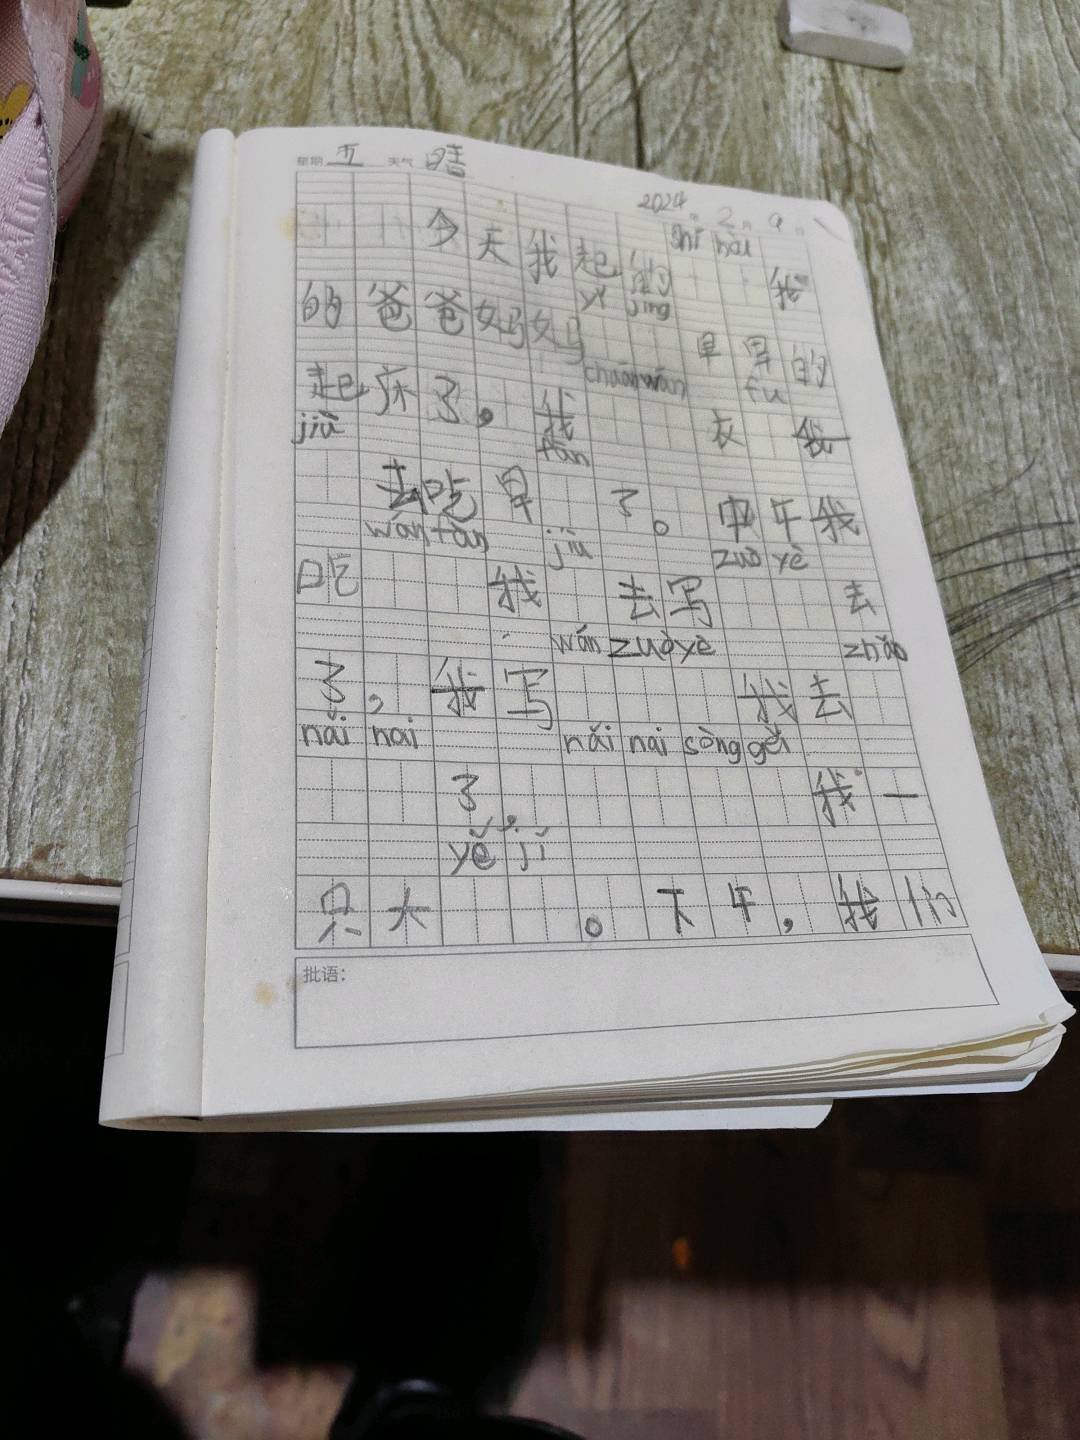 星期 五 天气 晴
2024 . 2 . 9 .
shí hai
今天我起的 我
yǐ jing
的爸爸妈妈 早早的
chuānwán fu
起床了，我 衣 我
jiù fàn
去吃早 了。中午我
wán fàn jiu zuò yè
吃 我 去写 去
wán zuòyè zhǎo
了，我写 我去
nǎi nai nǎi nai sòng gěi
了， 我一
yě jī
只大 。下午，我们
批语：